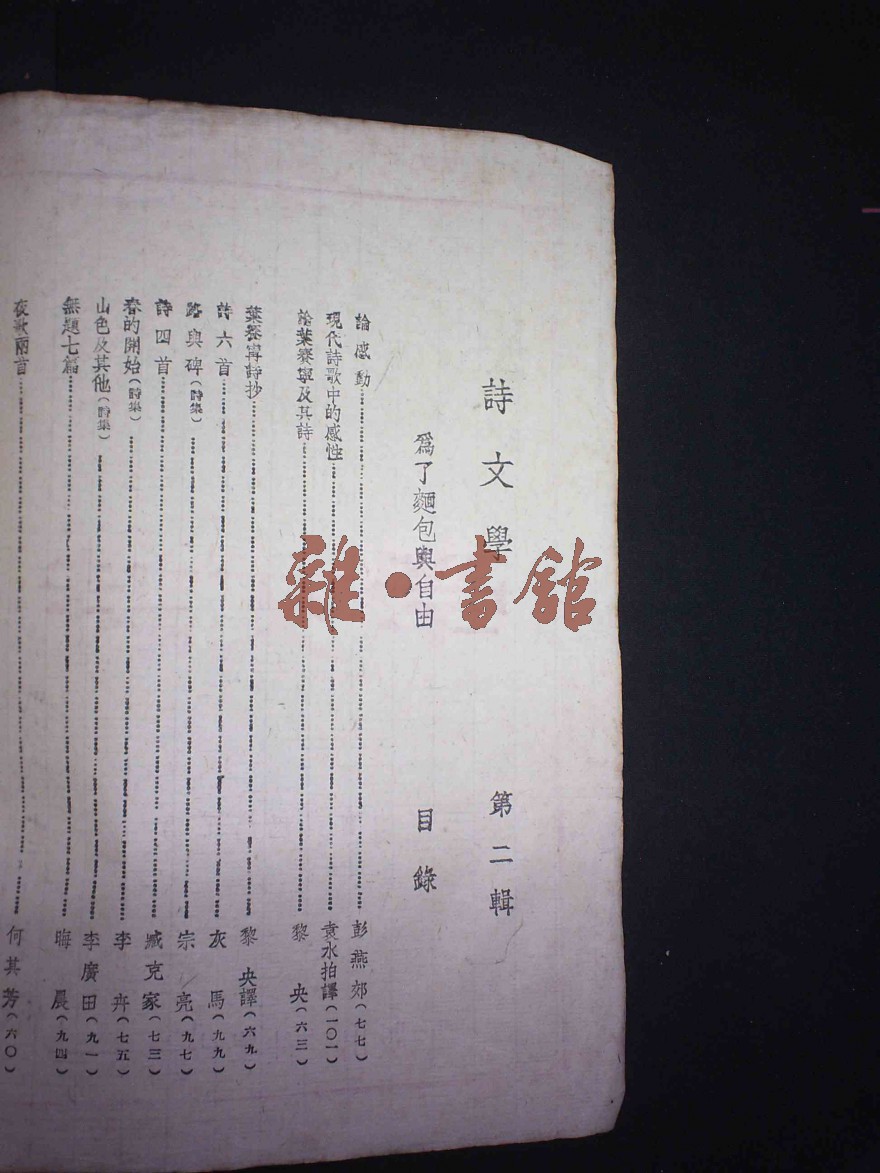 詩文學 第二輯
爲了麵包與自由 目錄
論感動 彭燕郊(七七)
現代詩歌中的感性 袁水拍譯(一〇一)
論葉賽寧及其詩 黎央(六三)
葉賽甯詩抄 黎央譯(六九)
詩六首 灰馬(九九)
路與碑(詩集) 宗亮(九七)
詩四首 臧克家(七三)
春的開始(詩集) 李卉(七五)
山色及其他(詩集) 李廣田(九一)
無題七篇 晦晨(九四)
夜歌兩首 何其芳(六〇)
雜·書館